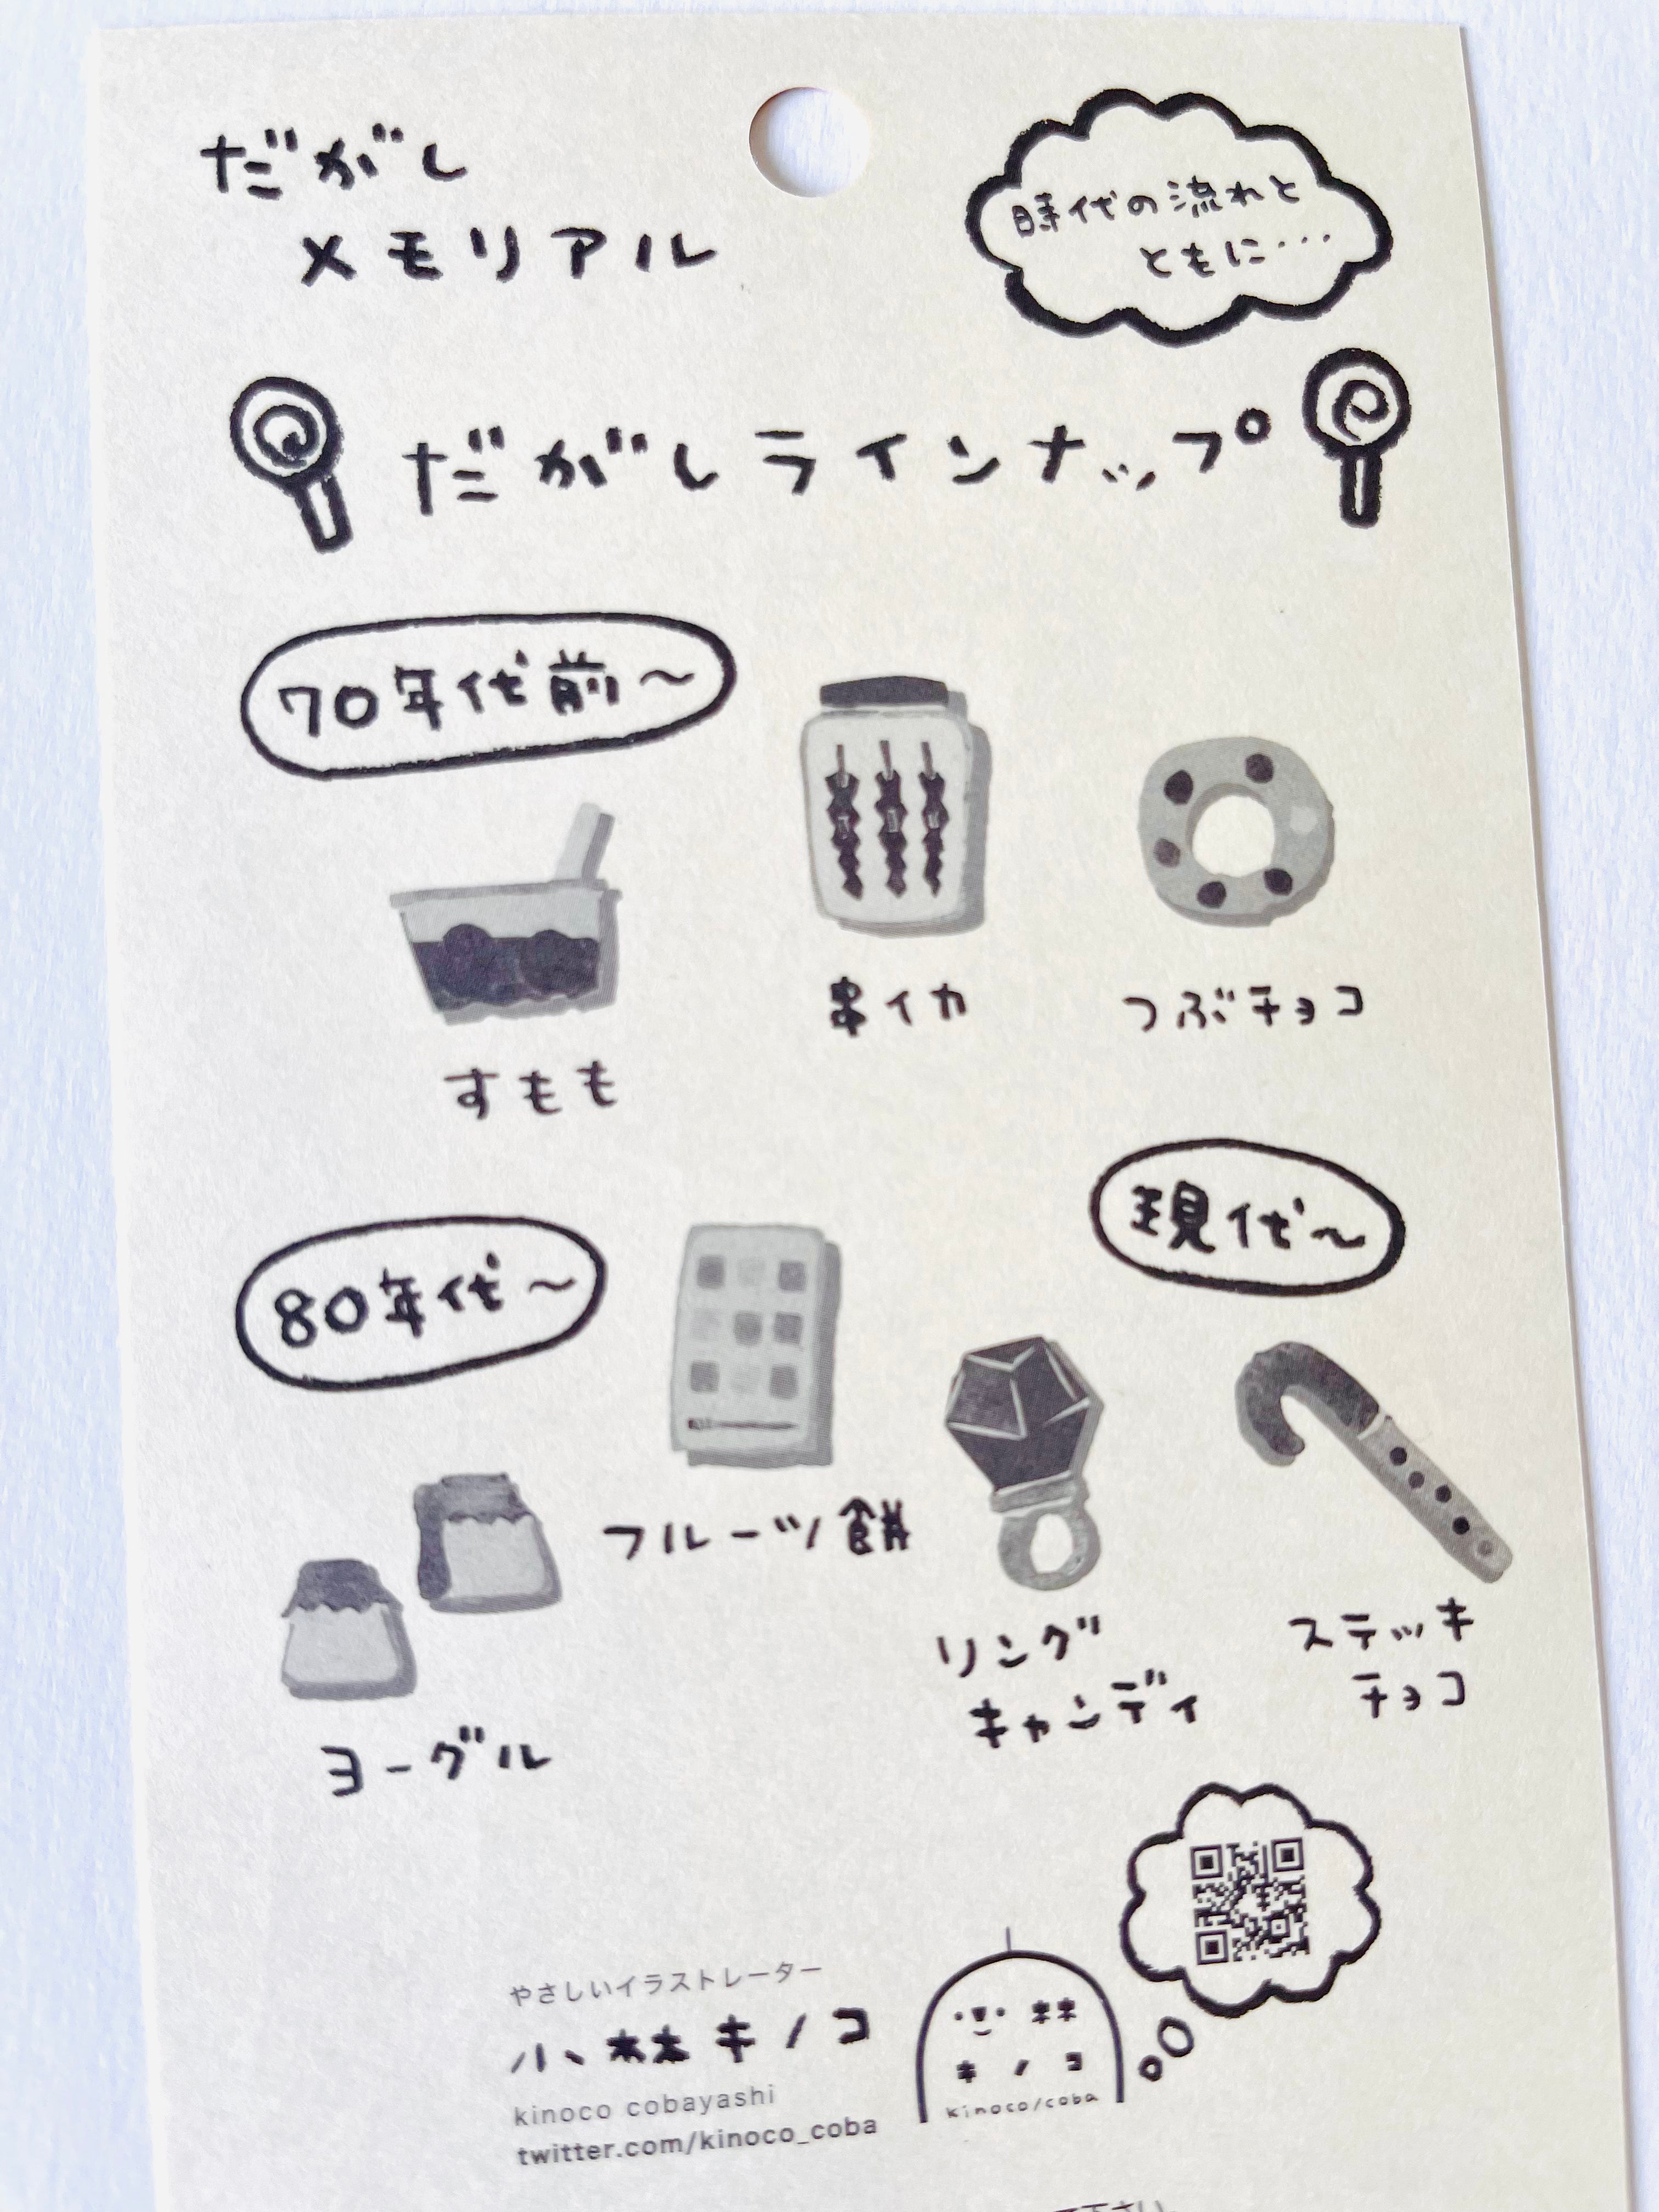 だがし
メモリアル
時代の流れと
ともに…
だがしラインナップ
70年代前～
すもも
串イカ
つぶチョコ
80年代～
フルーツ餅
ヨーグル
現代～
リング
キャンディ
ステッキ
チョコ
やさしいイラストレーター
小林キノコ
kinoco cobayashi
twitter.com/kinoco_coba
林
キノコ
kinoco/coba
下さい。